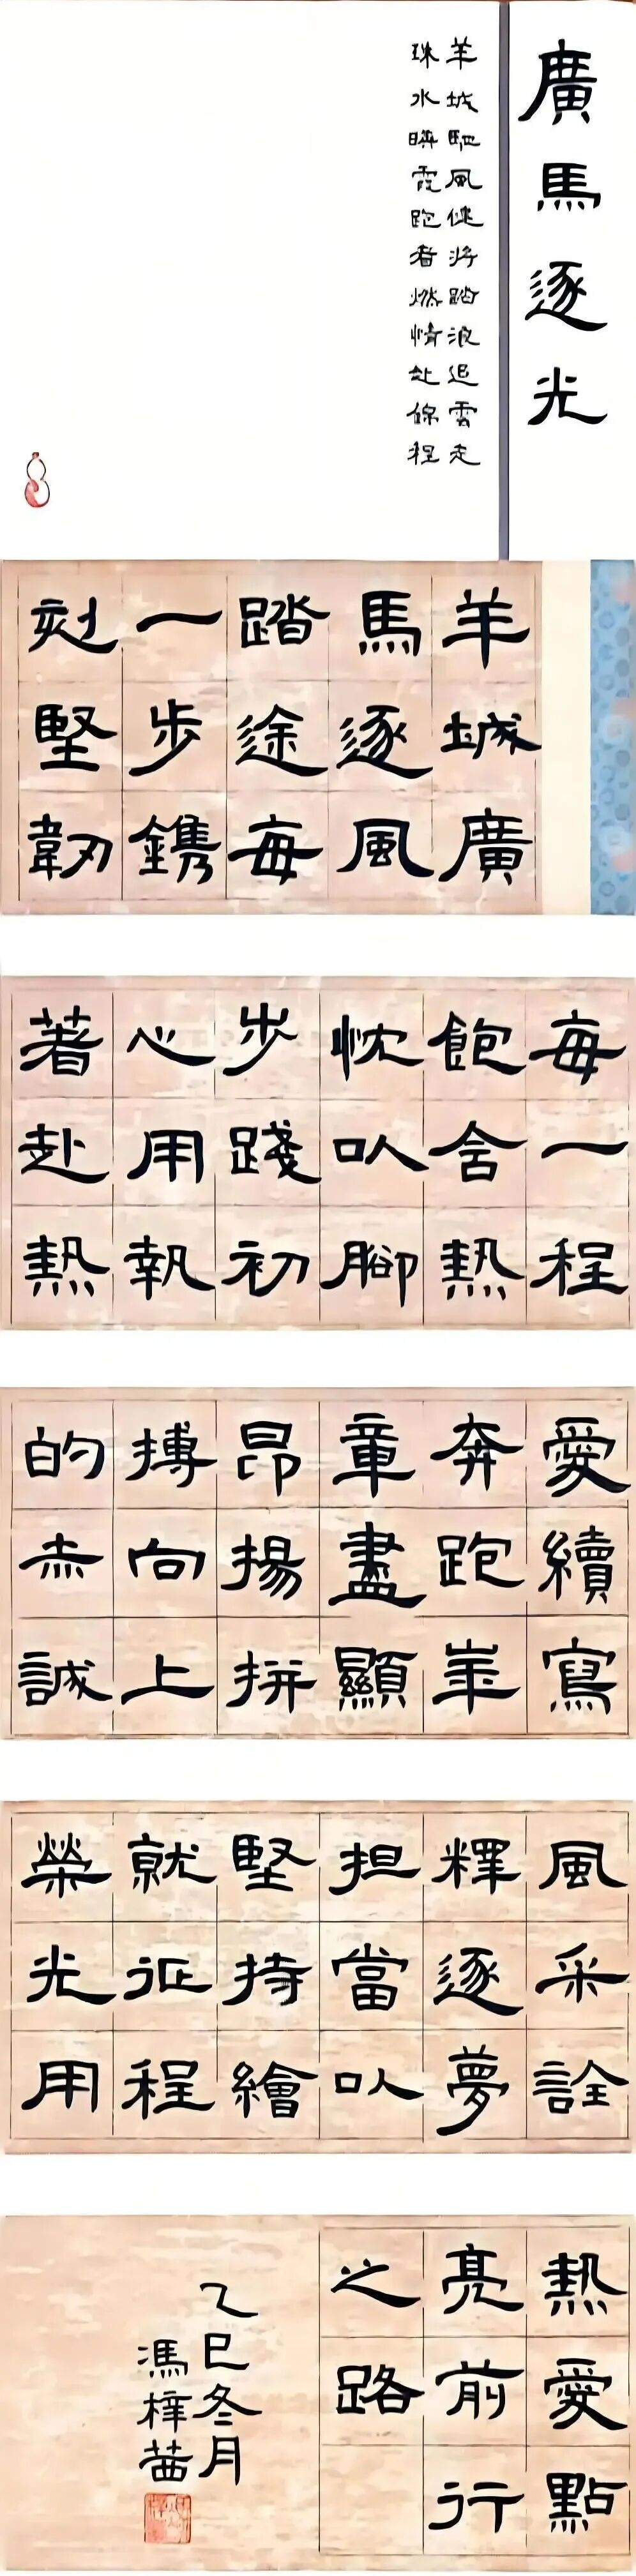 廣馬逐光
羊城馳風健將踏浪追雲走
珠水暎霞跑者燃情赴錦程
羊城廣
馬逐風
踏途每
一步鐫
刻堅韌
每一程
飽含熱
忱以腳
步踐初
心用執
著赴熱
愛續寫
奔跑崋
章盡顯
昂揚拼
搏向上
的赤誠
風采詮
釋逐夢
担當以
堅持繪
就征程
榮光用
熱愛點
亮前行
之路
乙巳冬月
馮梓茜